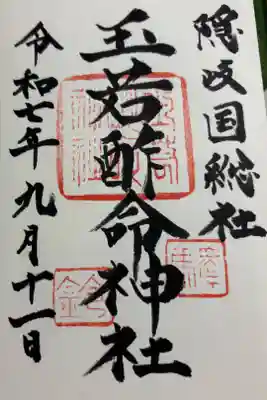 隠岐国総社
玉若酢命神社
令和七年九月十一日